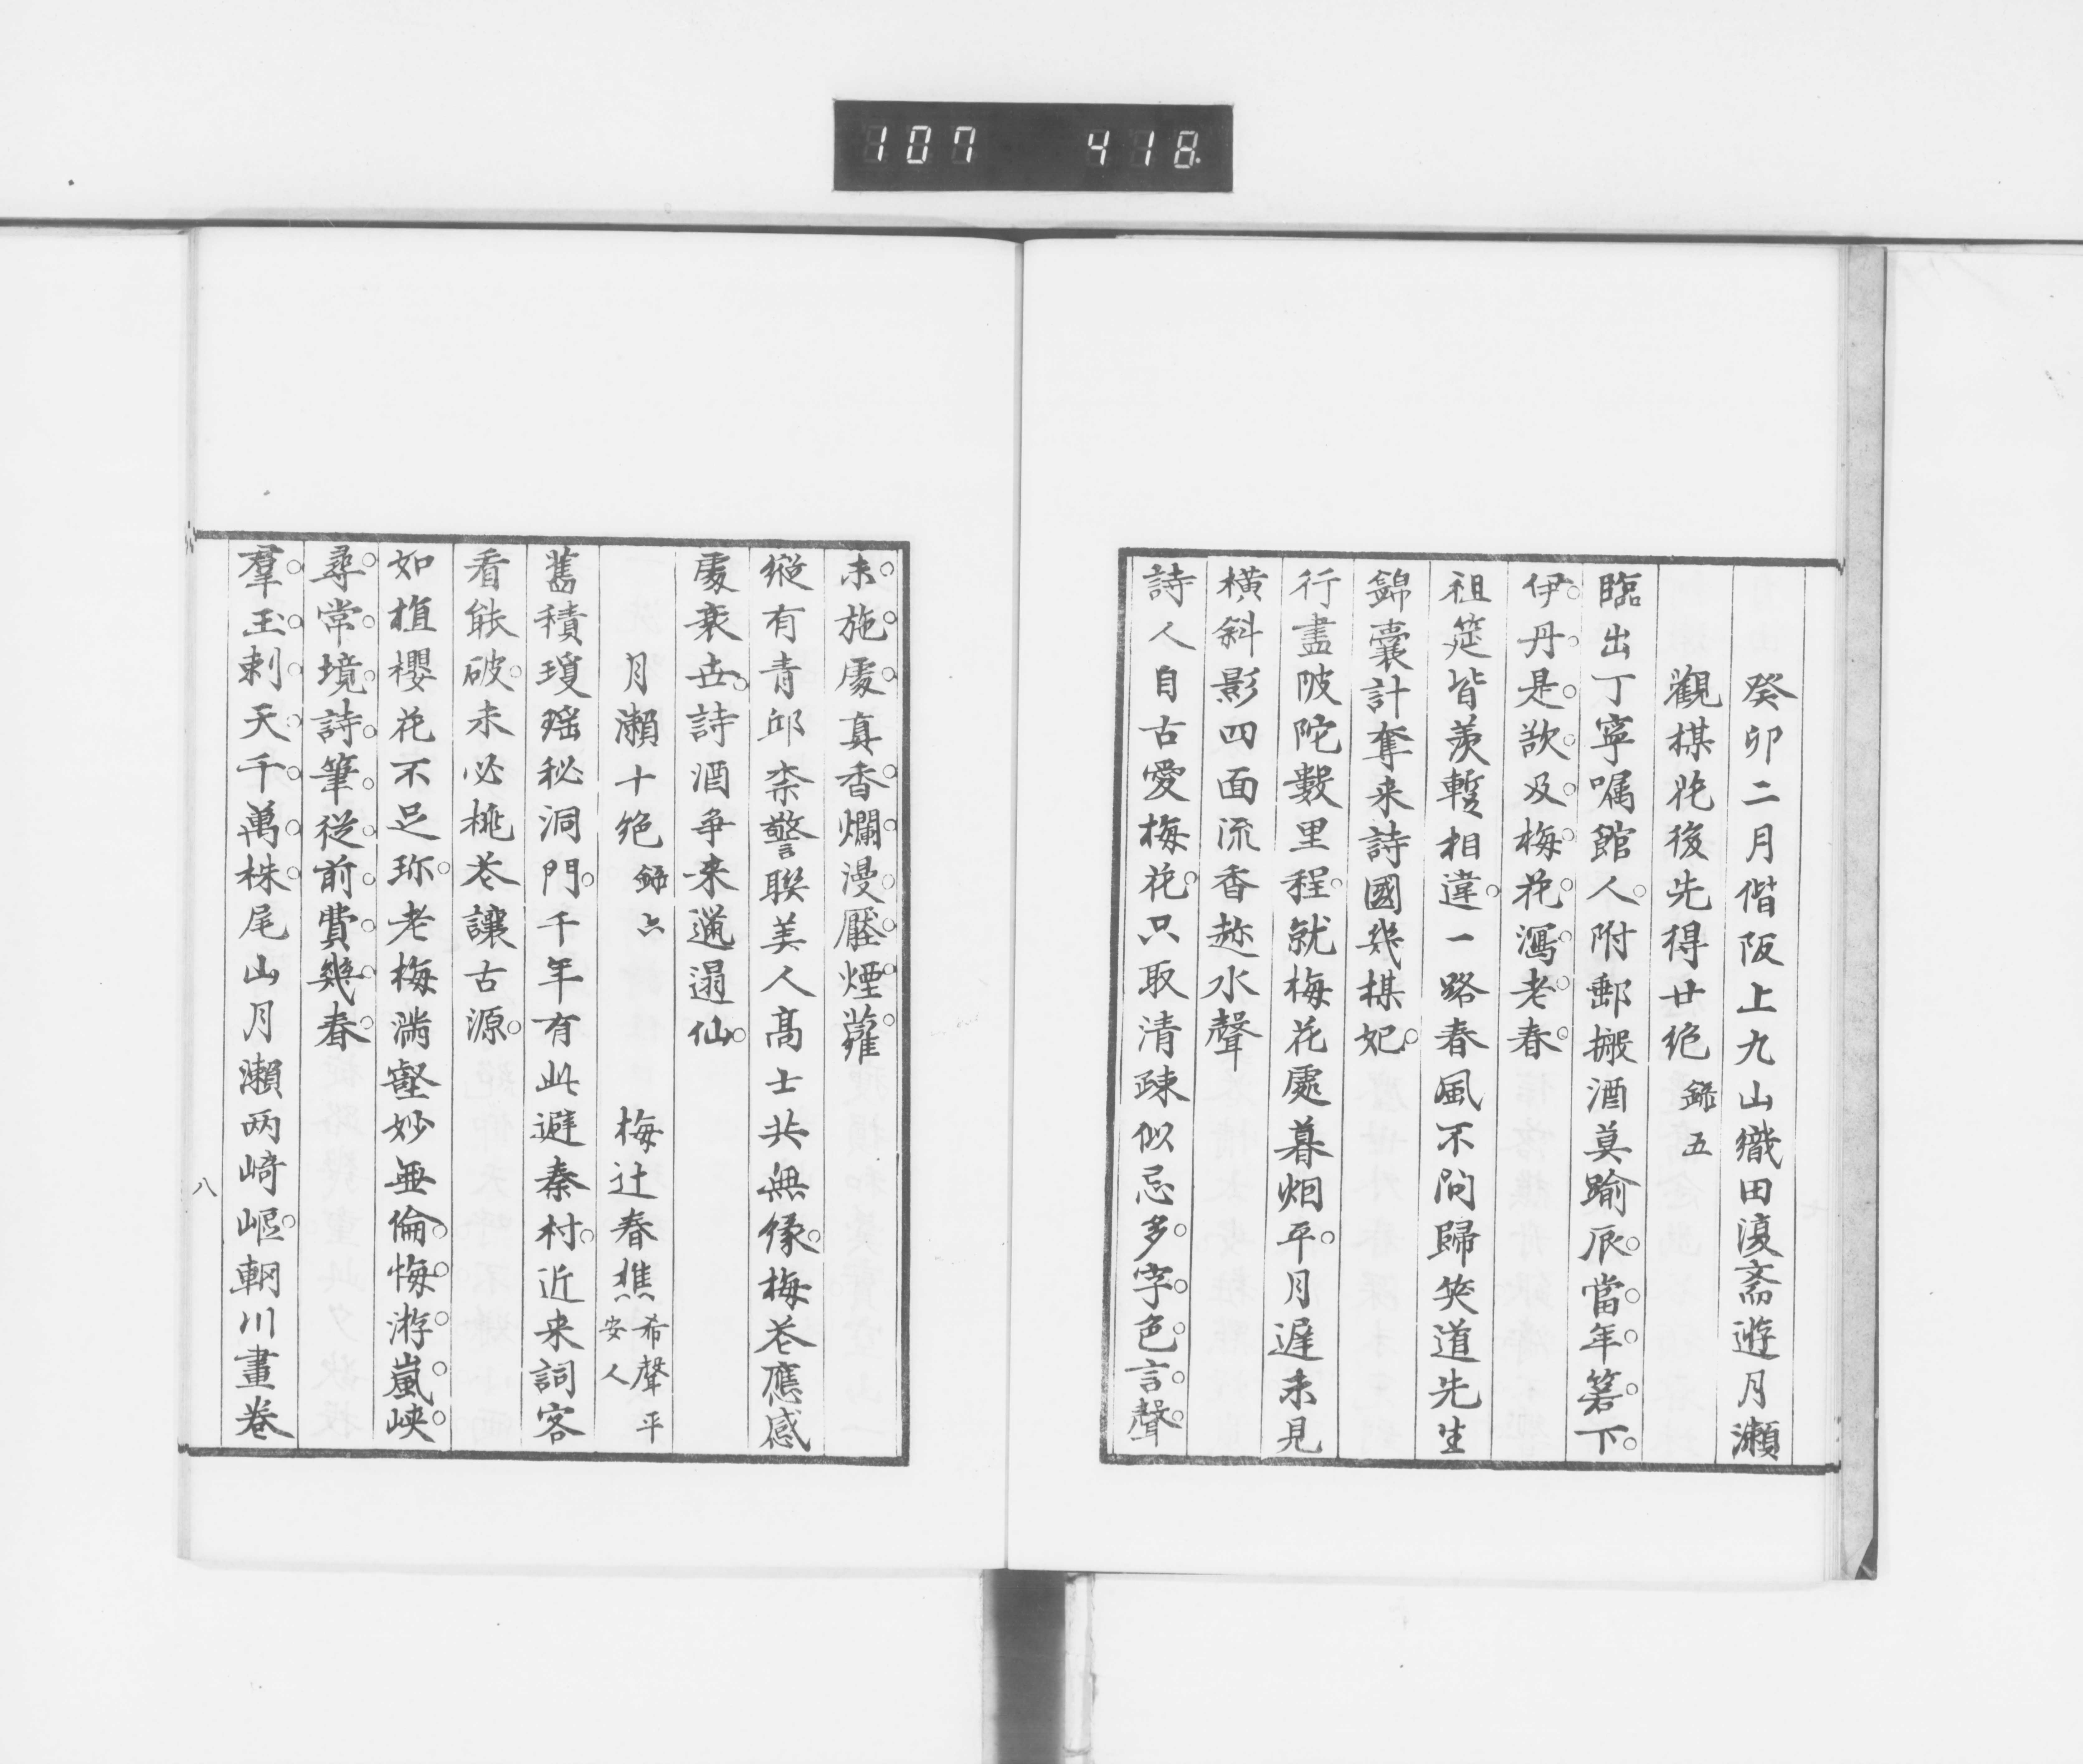 107 418
癸卯二月偕阪上九山織田復斎遊月瀬
觀楳花後先得廿絶 録五
臨出丁寧嘱館人附郵搬酒莫踰辰當年箬下
伊丹是欲及梅花瀉老春
祖筵皆羨暫相違一路春風不問歸笑道先生
錦嚢計奪来詩國幾楳妃
行盡陂陀數里程就梅花處暮烟平月遅未見
橫斜影四面流香趂水聲
詩人自古愛梅花只取清疎似忌多字色言聲
未施處真香爛漫壓煙蘿
縱有青邱柰警聯美人高士共無緣梅花應感
處衰世詩酒爭来邋遢仙
月瀬十絶 録六 梅辻春樵 希聲平安人
舊積瓊瑶秘洞門千年有此避秦村近来詞客
看能破未必桃花讓古源
如植櫻花不足珎老梅満壑妙無倫悔游嵐峡
尋常境詩筆従前賞幾春
羣玉刺天千萬株尾山月瀬两﨑嶇輞川畫巻
八